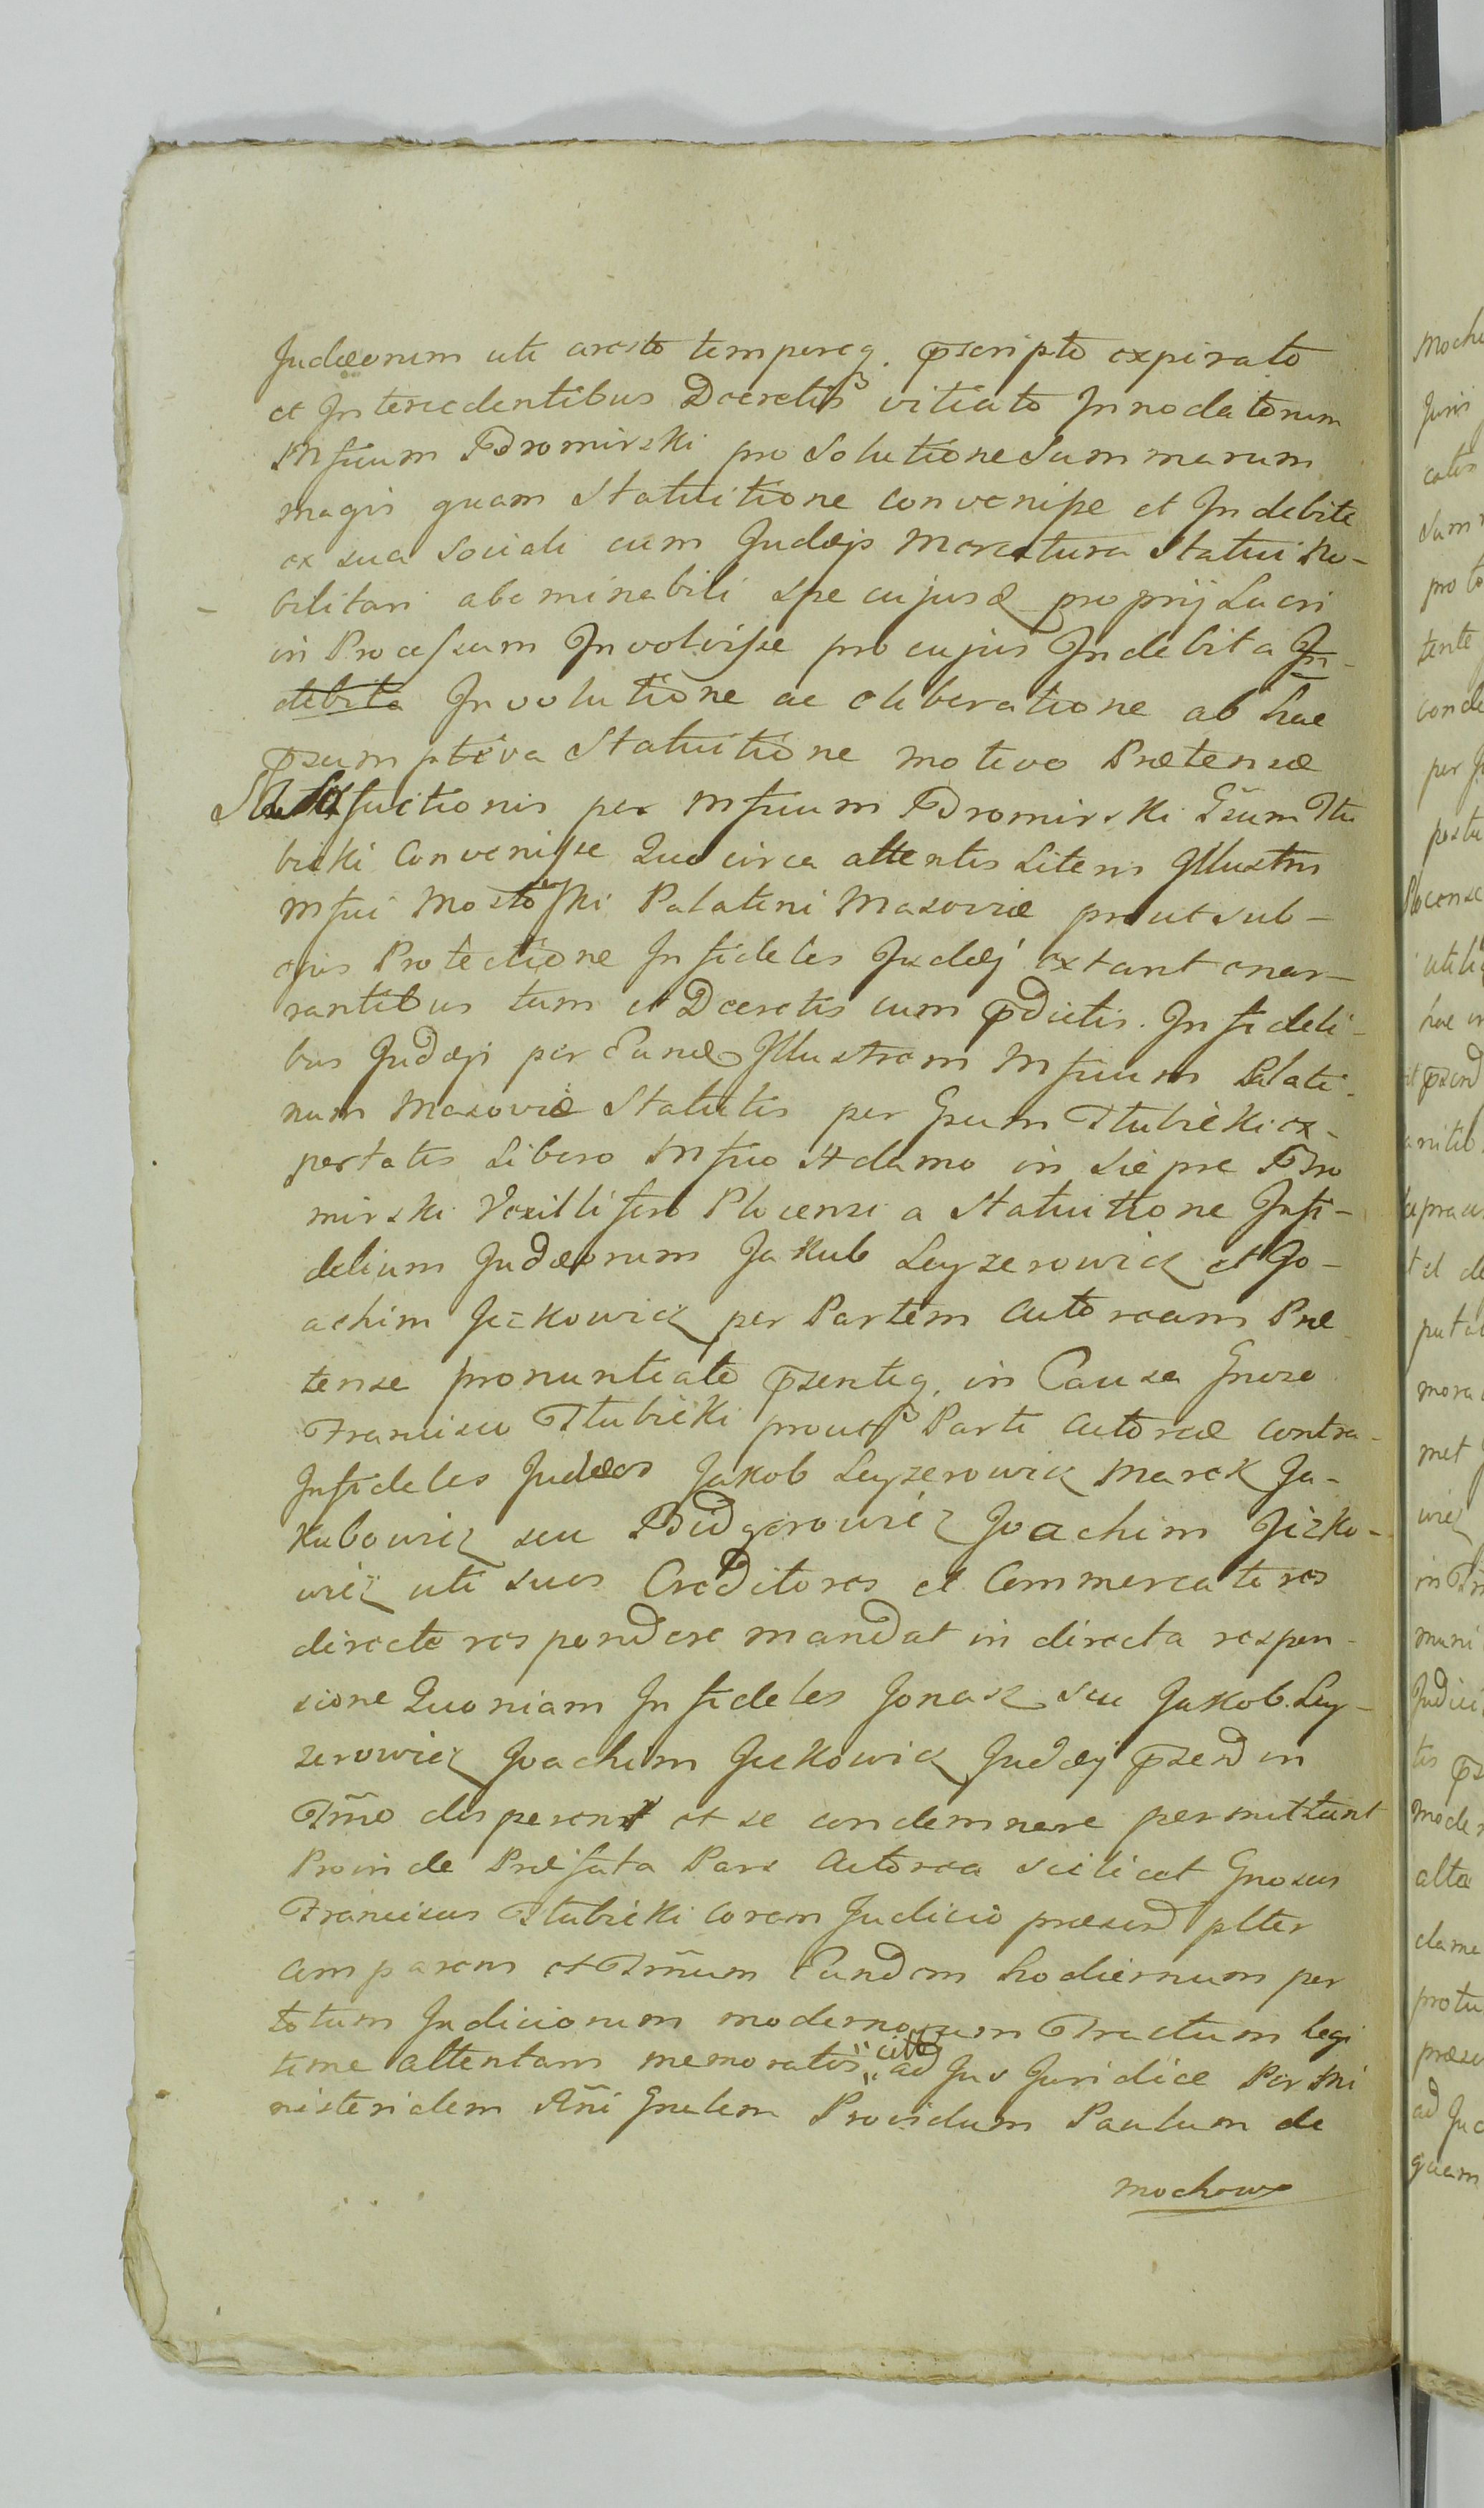 Judæorum uti aresto temporeq. p̄scripto expirato
et Intercedentibus Decretis vitiato Innodatorum
Mfcum Bromirski pro Solutione Summarum
magis quam Statuitione convenisse et Indebite
ex sua Sociali cum Judæjs Mercatura Statui No-
bilitari abominabili spe cujusq proprij Lucri
in Processum Involvisse pro cujus Indebita In-
debita Involutione ac oliberatione ab hac
p̄sumptiva Statuitione motivo Prætensæ
Satisfactionis per Mfcum Bromirski Gsum Stu
bicki Convenisse Quocirca attentis Literis Illustris
Mfci Mostowski Palatini Masoviæ prout sub-
ejus Protectione Infideles Judæj extant enar-
rantibus tum et Decretis cum p̄dictis. Infideli-
bus Judæjs per Eundem Illustrem Mfcum Palati-
num Masoviæ Statutis per Gsum Stubicki ex-
portatis Libero Mfco Adamo in Siepre Bro
mirski Vexillifero Plocensi a Statuitione Infi-
delium Judæorum Jakub Leyzerowicz et Jo-
achim Jczkowicz per Partem Actoream Præ
tense pronuntiato p̄sentiq. in Causa Gnoso
Francisco Stubicki prout Parti Actoreæ contra-
Infideles Judæos Jakob Leyzerowicz Marek Ja-
kubowicz seu Bidgorowicz Joachim Jczko-
wicz uti suos Creditores et Commercatores
directe respondere mandat in directa respon-
sione Quoniam Infideles Jonasz seu Jakob. Ley-
zerowicz Joachim Jczkowicz Judæj p̄send in
Tm̃o disperent et se condemnare permittunt
Proinde Præfata Pars Actorea scilicet Gnosus
Franciscus Stubicki coram Judicio præsend plter
Comparens et Tm̃um Eundem hodiernum per
totum Judiciorum modernorum Tractum legi
time attentans memoratos citt ad Jus Juridice Per Mi
nisterialem Rñi Gnalem Providum Paulum de
Mochowo